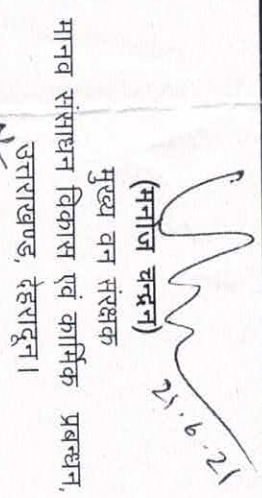 25.6.21
(मनोज चन्द्रन)
मुख्य वन संरक्षक
मानव संसाधन विकास एवं कार्मिक प्रबन्धन,
उत्तराखण्ड, देहरादून।